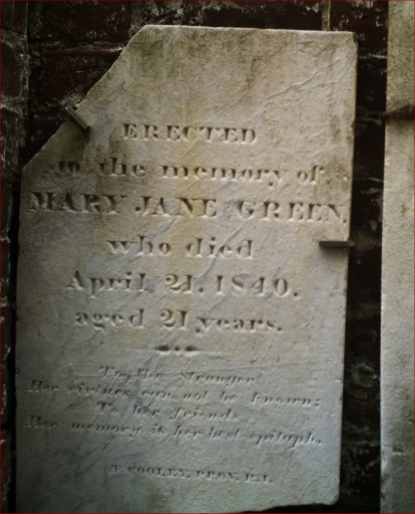 ERECTED
to the memory of
MARY JANE GREEN.
who died
April 21. 1840.
aged 21 years.
To the Stranger
Her virtues can not be known;
To her friends
Her memory is her best epitaph.
T. COOLEY, PROV. R.I.